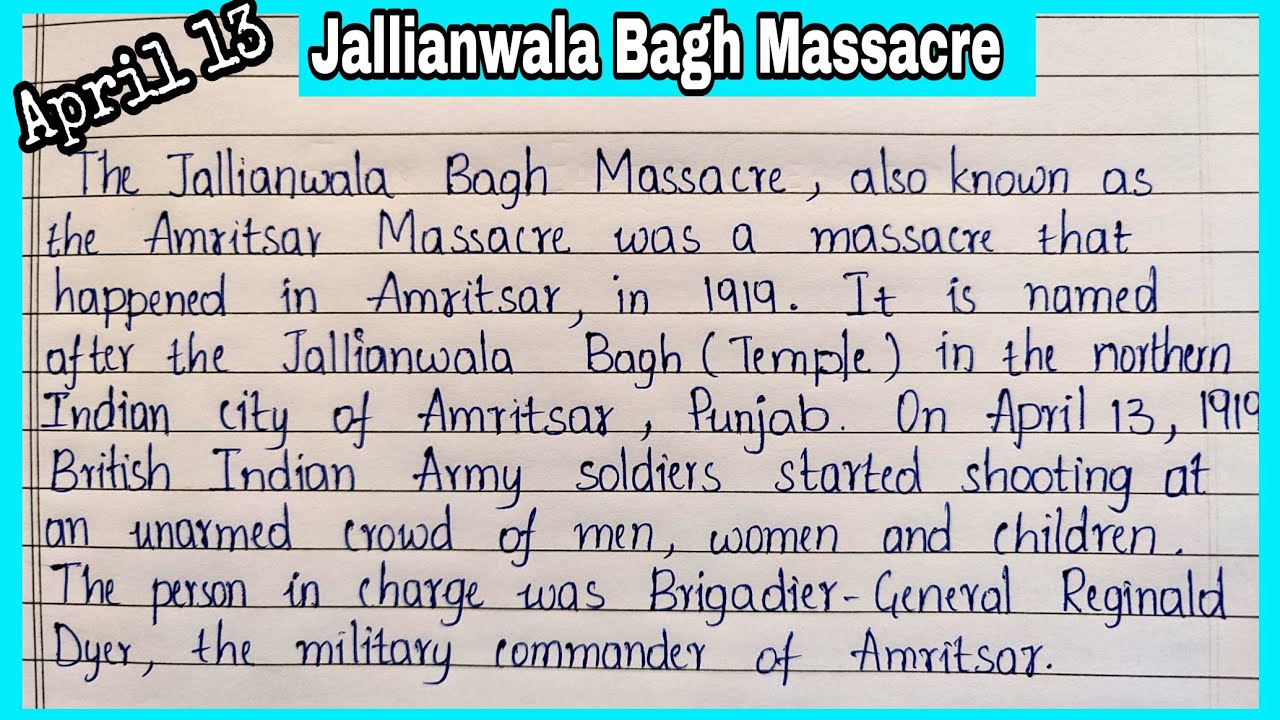 April 13
Jallianwala Bagh Massacre
The Jallianwala Bagh Massacre, also known as
the Amritsar Massacre was a massacre that
happened in Amritsar, in 1919. It is named
after the Jallianwala Bagh (Temple) in the northern
Indian city of Amritsar, Punjab. On April 13, 1919
British Indian Army soldiers started shooting at
an unarmed crowd of men, women and children.
The person in charge was Brigadier-General Reginald
Dyer, the military commander of Amritsar.